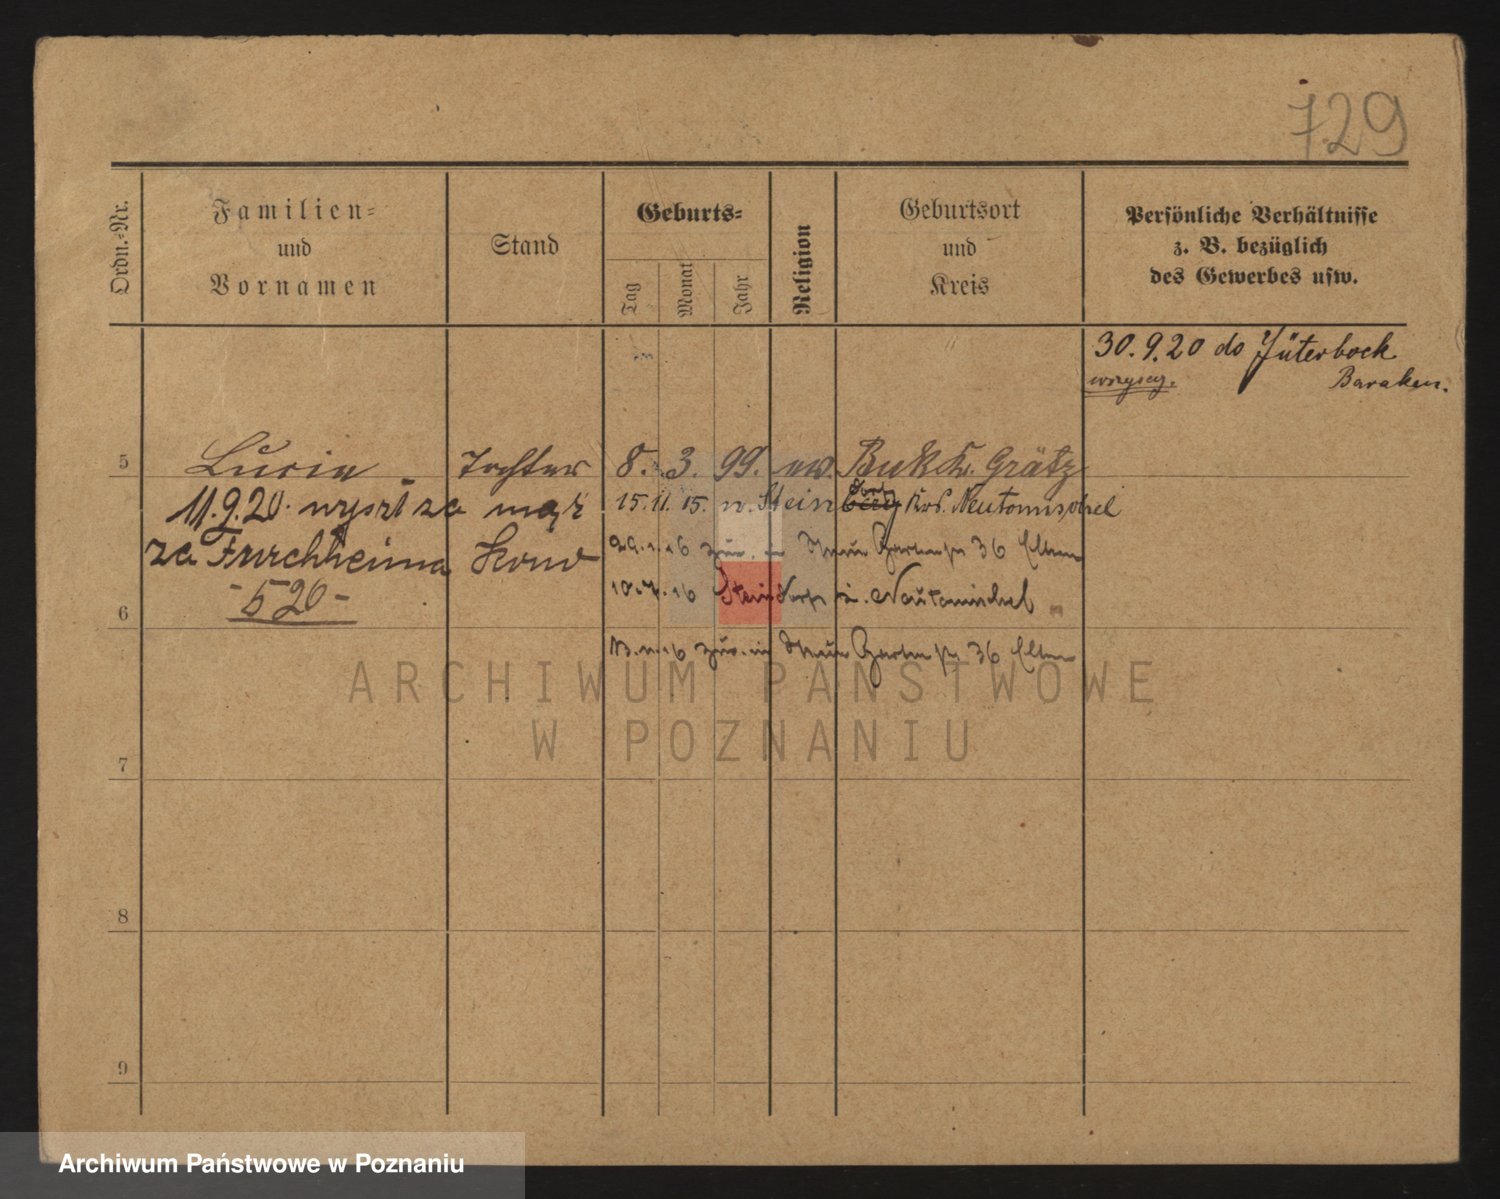 729
Ordn.-Nr.
Familien-
und
Vornamen
Stand
Geburts-
Tag
Monat
Jahr
Religion
Geburtsort
und
Kreis
Persönliche Verhältnisse
z. B. bezüglich
des Gewerbes usw.
30.9.20 do Jüterbock
Baraken.
5 Lucie Tochter 8. 3. 99. ev. Buk Kr. Grätz
11.9.20. wyszł za mąż 15. 11. 15. n. Stein dorf Krs. Neutomischel
za 36 Eltern
- 520 -
6 10.7.16 Steindorf i. Neutomischel
zur. in Gartenstr 36 Eltern
7
8
9
ARCHIWUM PAŃSTWOWE
W POZNANIU
Archiwum Państwowe w Poznaniu